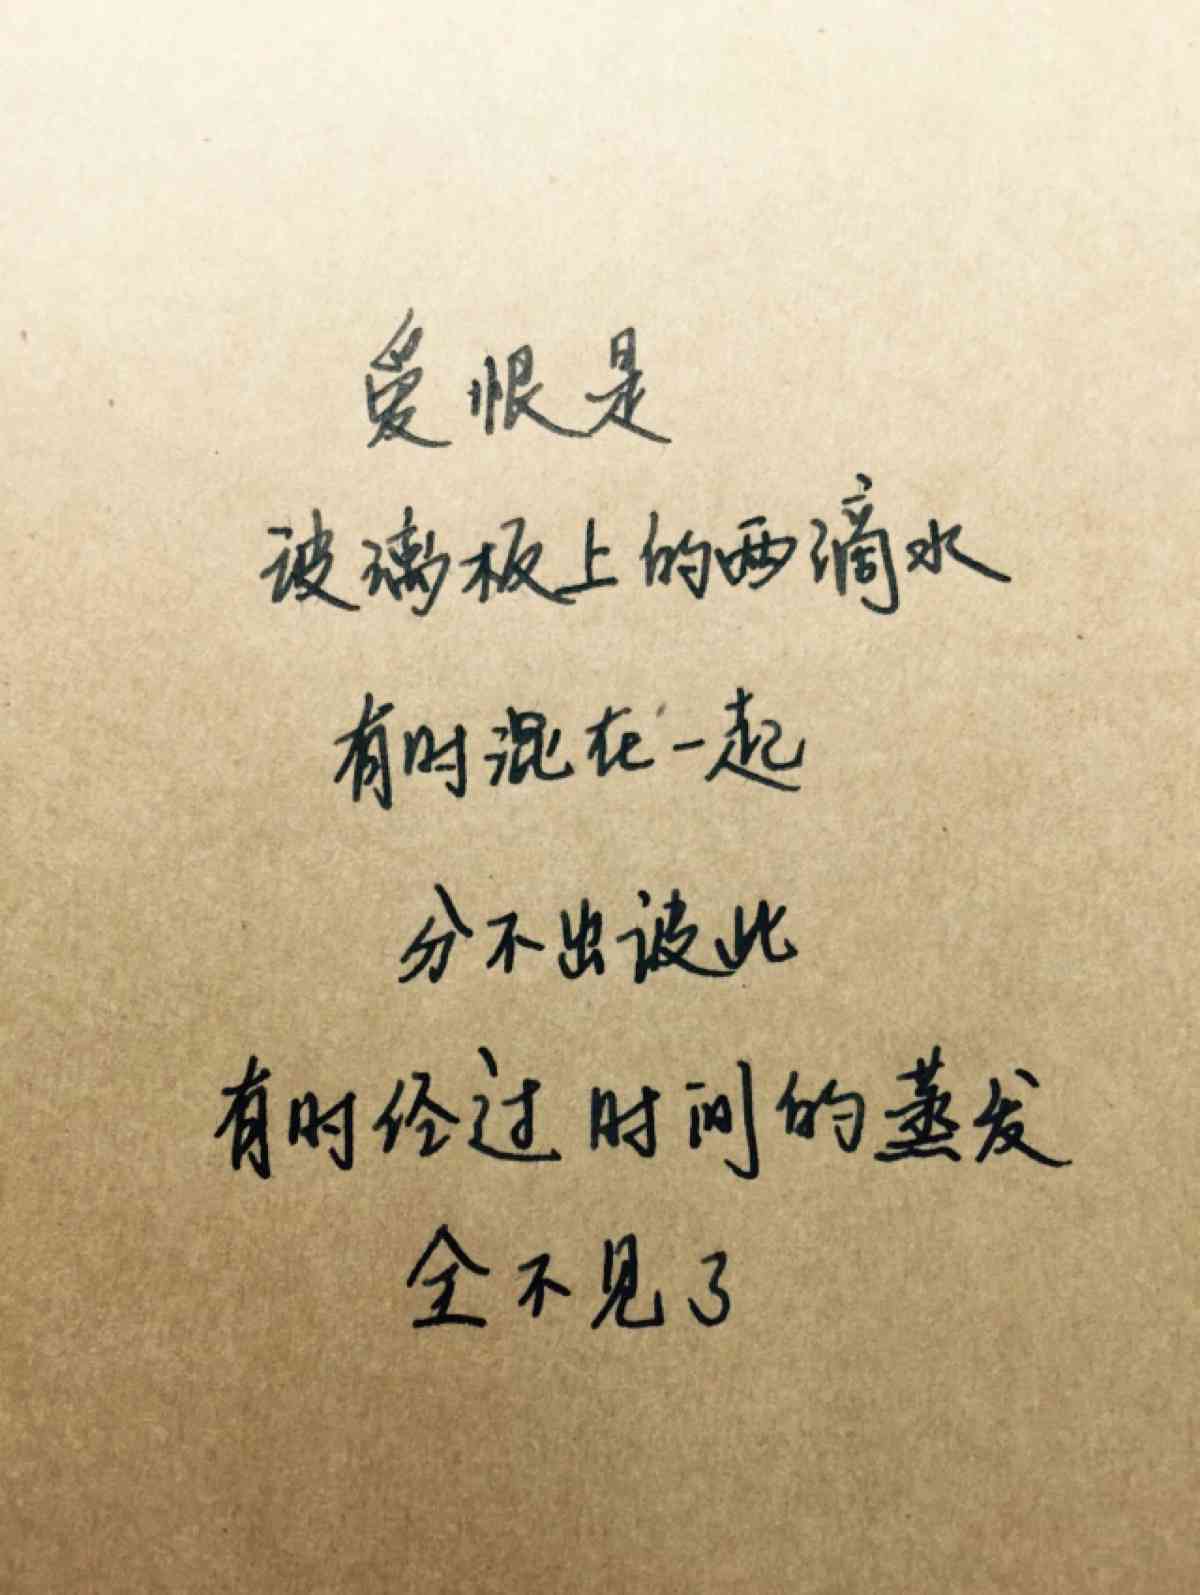 爱恨是
玻璃板上的两滴水
有时混在一起
分不出彼此
有时经过时间的蒸发
全不见了